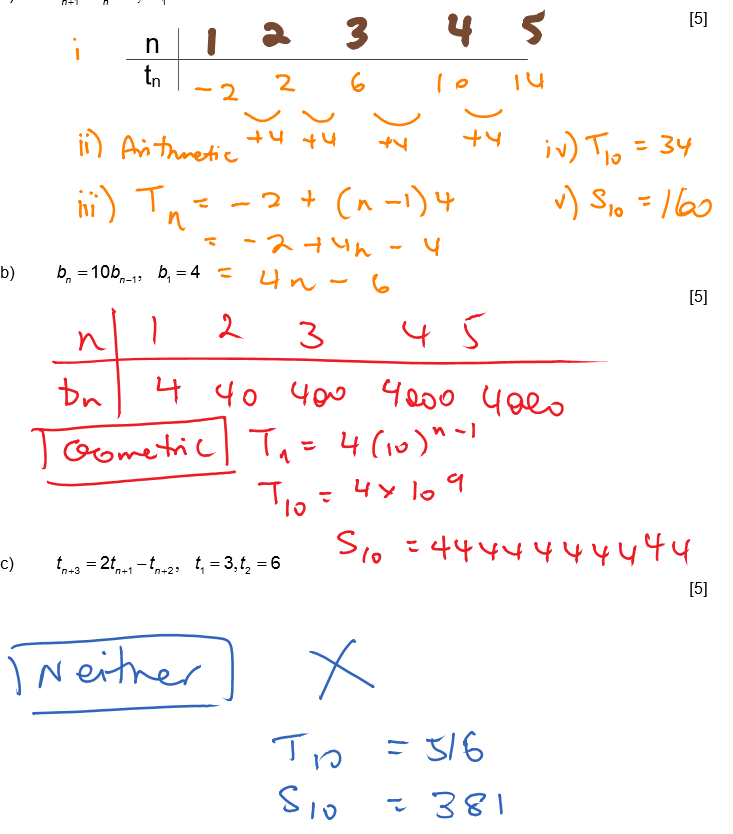 [5]
i
n 1 2 3 4 5
tn -2 2 6 10 14
+4 +4 +4 +4
ii) Arithmetic
iv) T10 = 34
iii) Tn = -2 + (n-1)4
v) S10 = 160
= -2+4n - 4
b) bn = 10bn-1, b1 = 4
= 4n - 6
[5]
n 1 2 3 4 5
bn 4 40 400 4000 4000
Geometric
Tn = 4(10)^n-1
T10 = 4 x 10^9
S10 = 4444444444
c) tn+3 = 2tn+1 - tn+2, t1 = 3, t2 = 6
[5]
Neither X
T10 = 516
S10 = 381